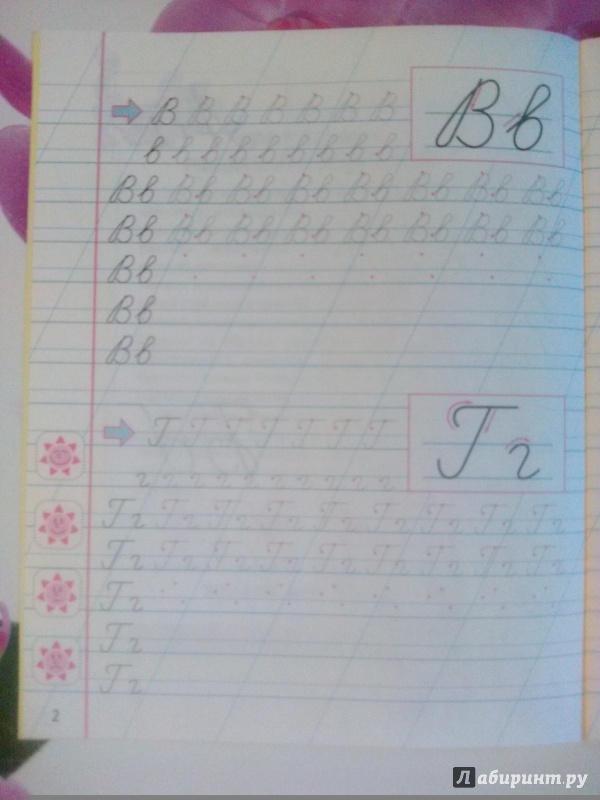 В В В В В В В
Вв
в в в в в в в в в
Вв Вв Вв Вв Вв Вв Вв Вв
Вв Вв Вв Вв Вв Вв Вв Вв
Вв
Вв
Вв
Г Г Г Г Г Г Г
Гг
г г г г г г г г г г
Гг Гг Гг Гг Гг Гг Гг Гг Гг
Гг Гг Гг Гг Гг Гг Гг Гг Гг
Гг
Гг
Гг
2
Лабиринт.ру